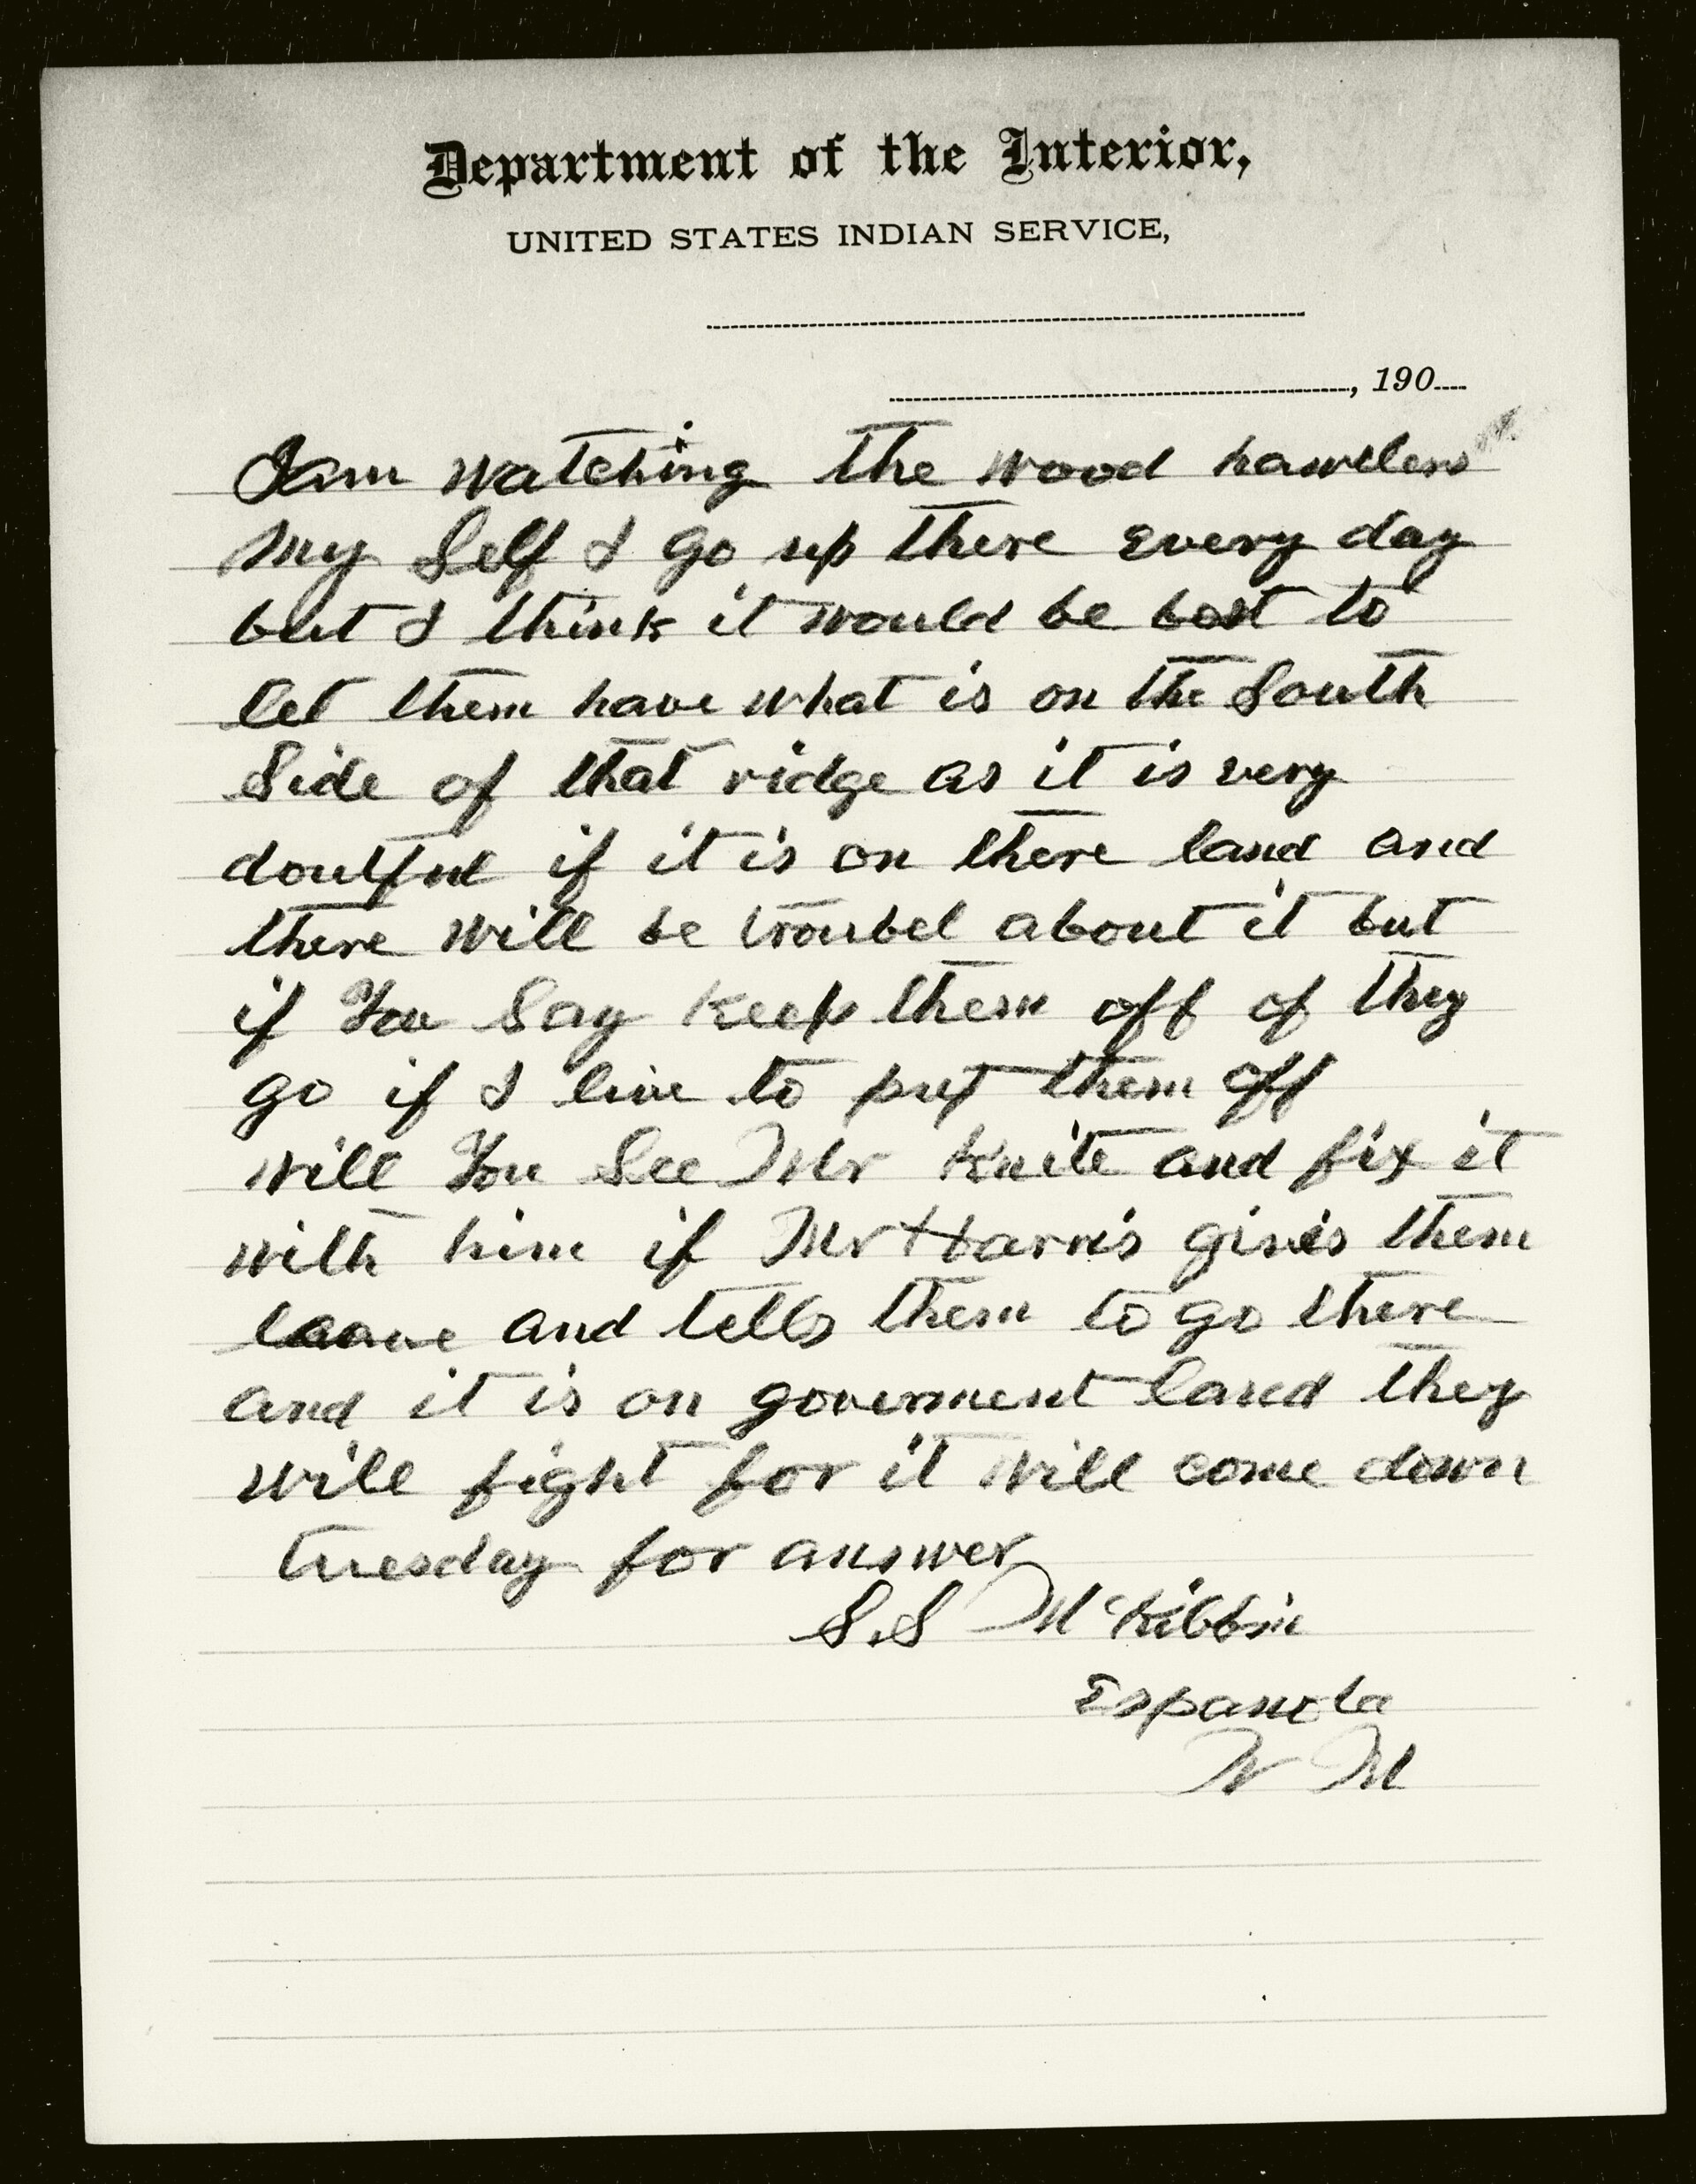 Department of the Interior,
UNITED STATES INDIAN SERVICE,
, 190
I am watching the wood hawlers
my Self I go up there every day
but I think it would be best to
let them have what is on the South
Side of that ridge as it is very
doutful if it is on there land and
there will be troubel about it but
if You Say keep them off of they
go if I live to put them off
will You See Mr Knite and fix it
with him if Mr Harris gives them
leave and tells them to go there
and it is on goverment land they
will fight for it will come down
tuesday for answer
S.S McKibbin
Espanola
N M